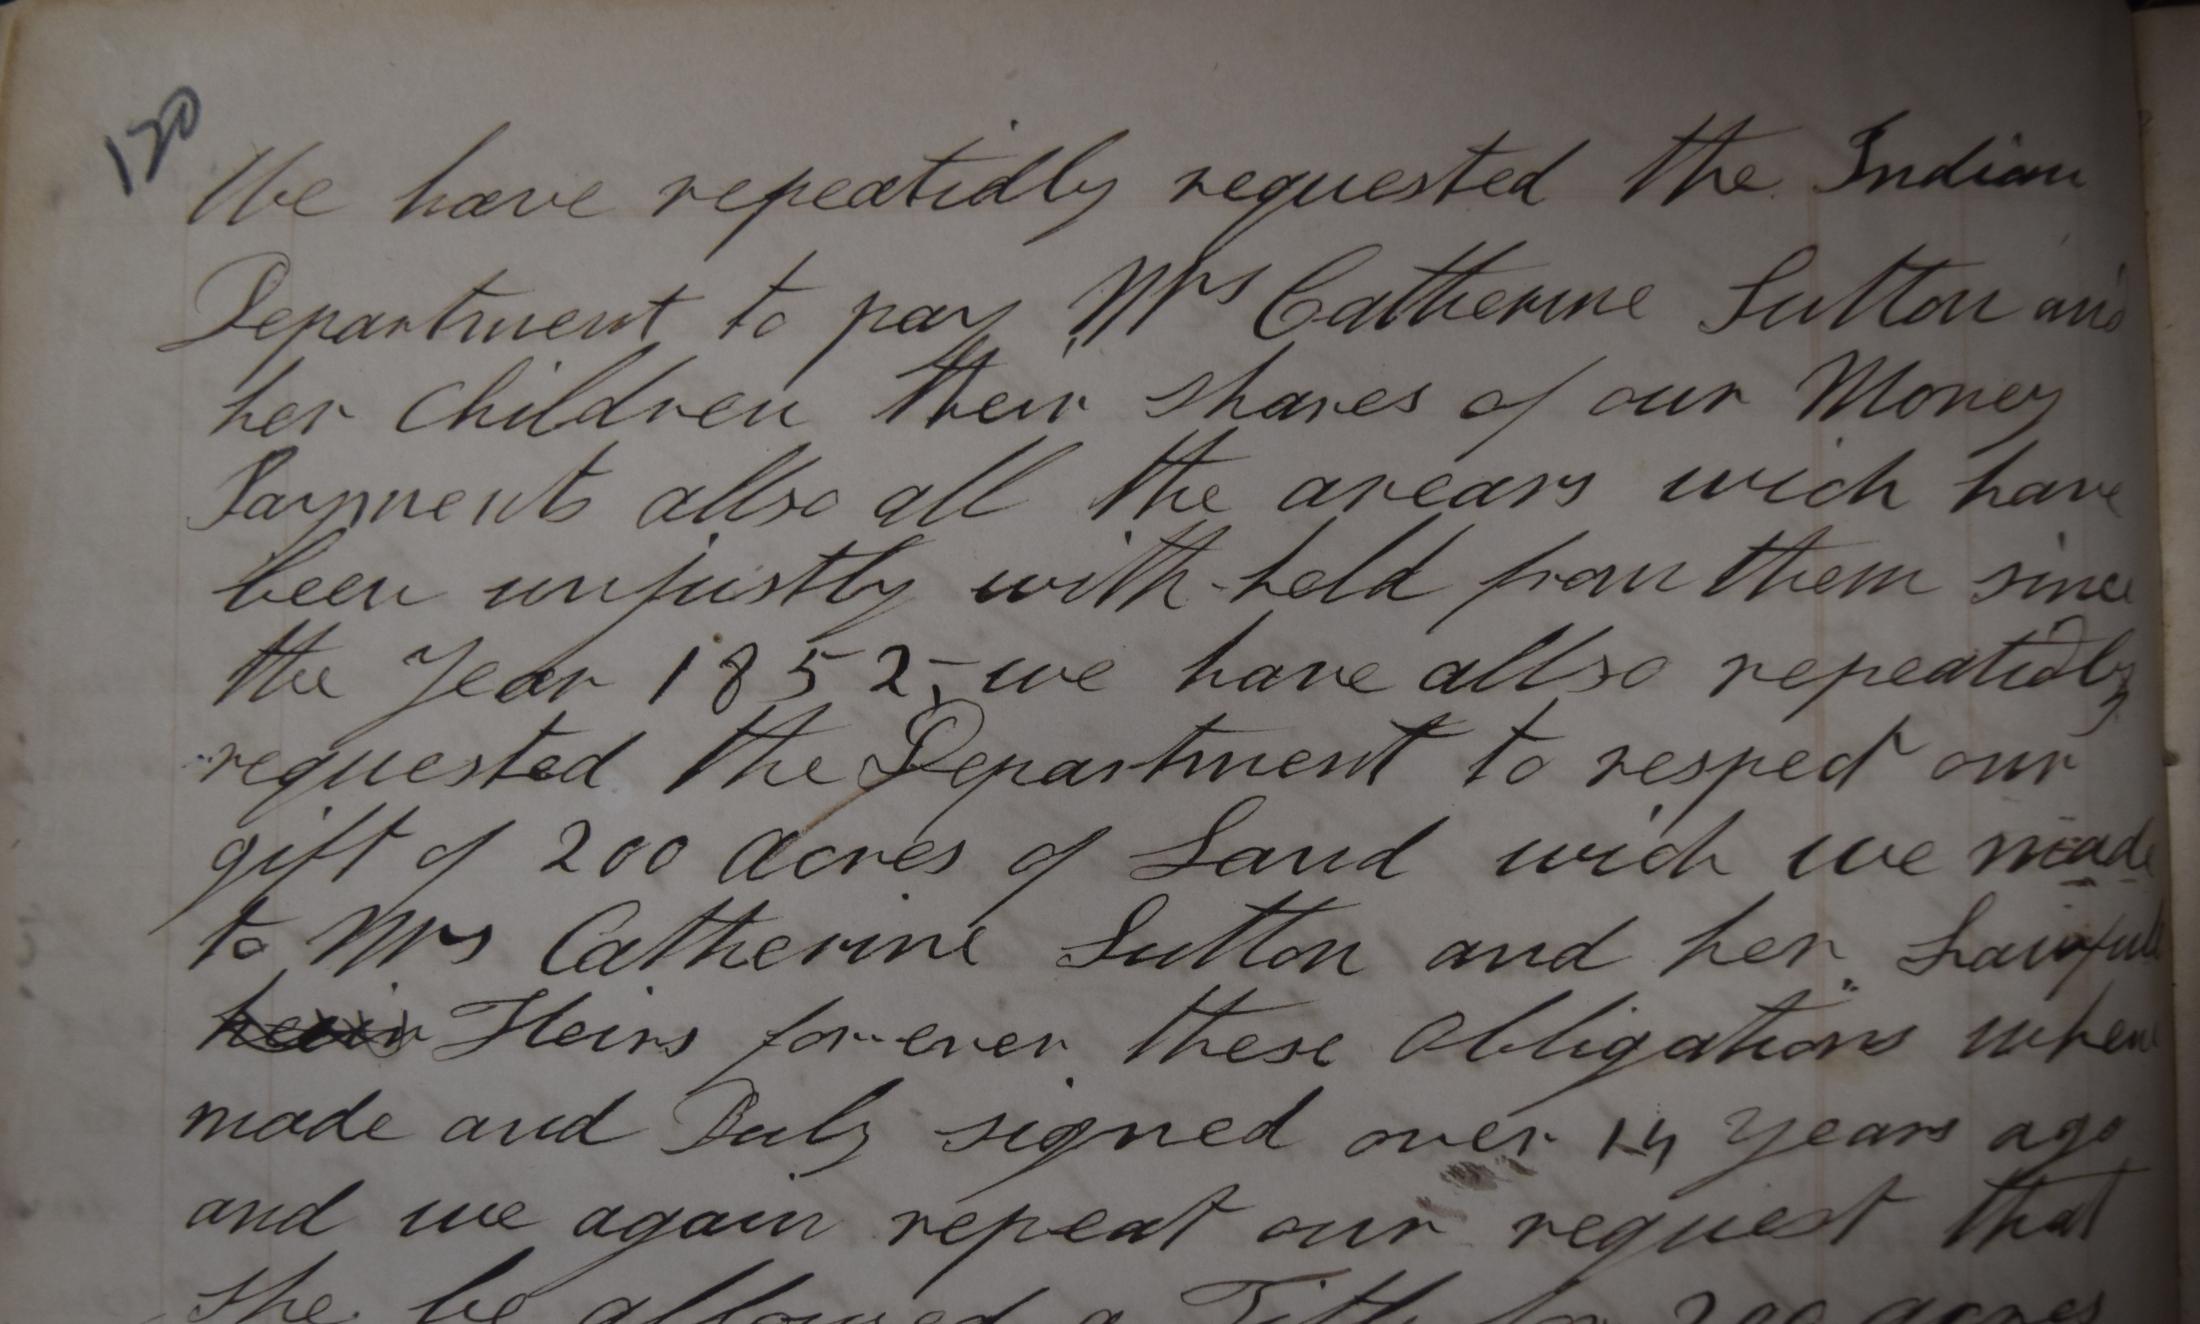 120
We have repeatidly requested the Indian
Department to pay Mrs Catherine Sutton and
her children their shares of our Money
Payments allso all the arears wich have
been unjustly with-held from them since
the Year 1852,- we have allso repeatidly
requested the Department to respect our
gift of 200 acres of Land wich we made
to Mrs Catherine Sutton and her Lawfull
heir Heirs for-ever these Obligations when
made and Duly signed over 14 Years ago
and we again repeat our request that
she be allowed a Title for 200 acres